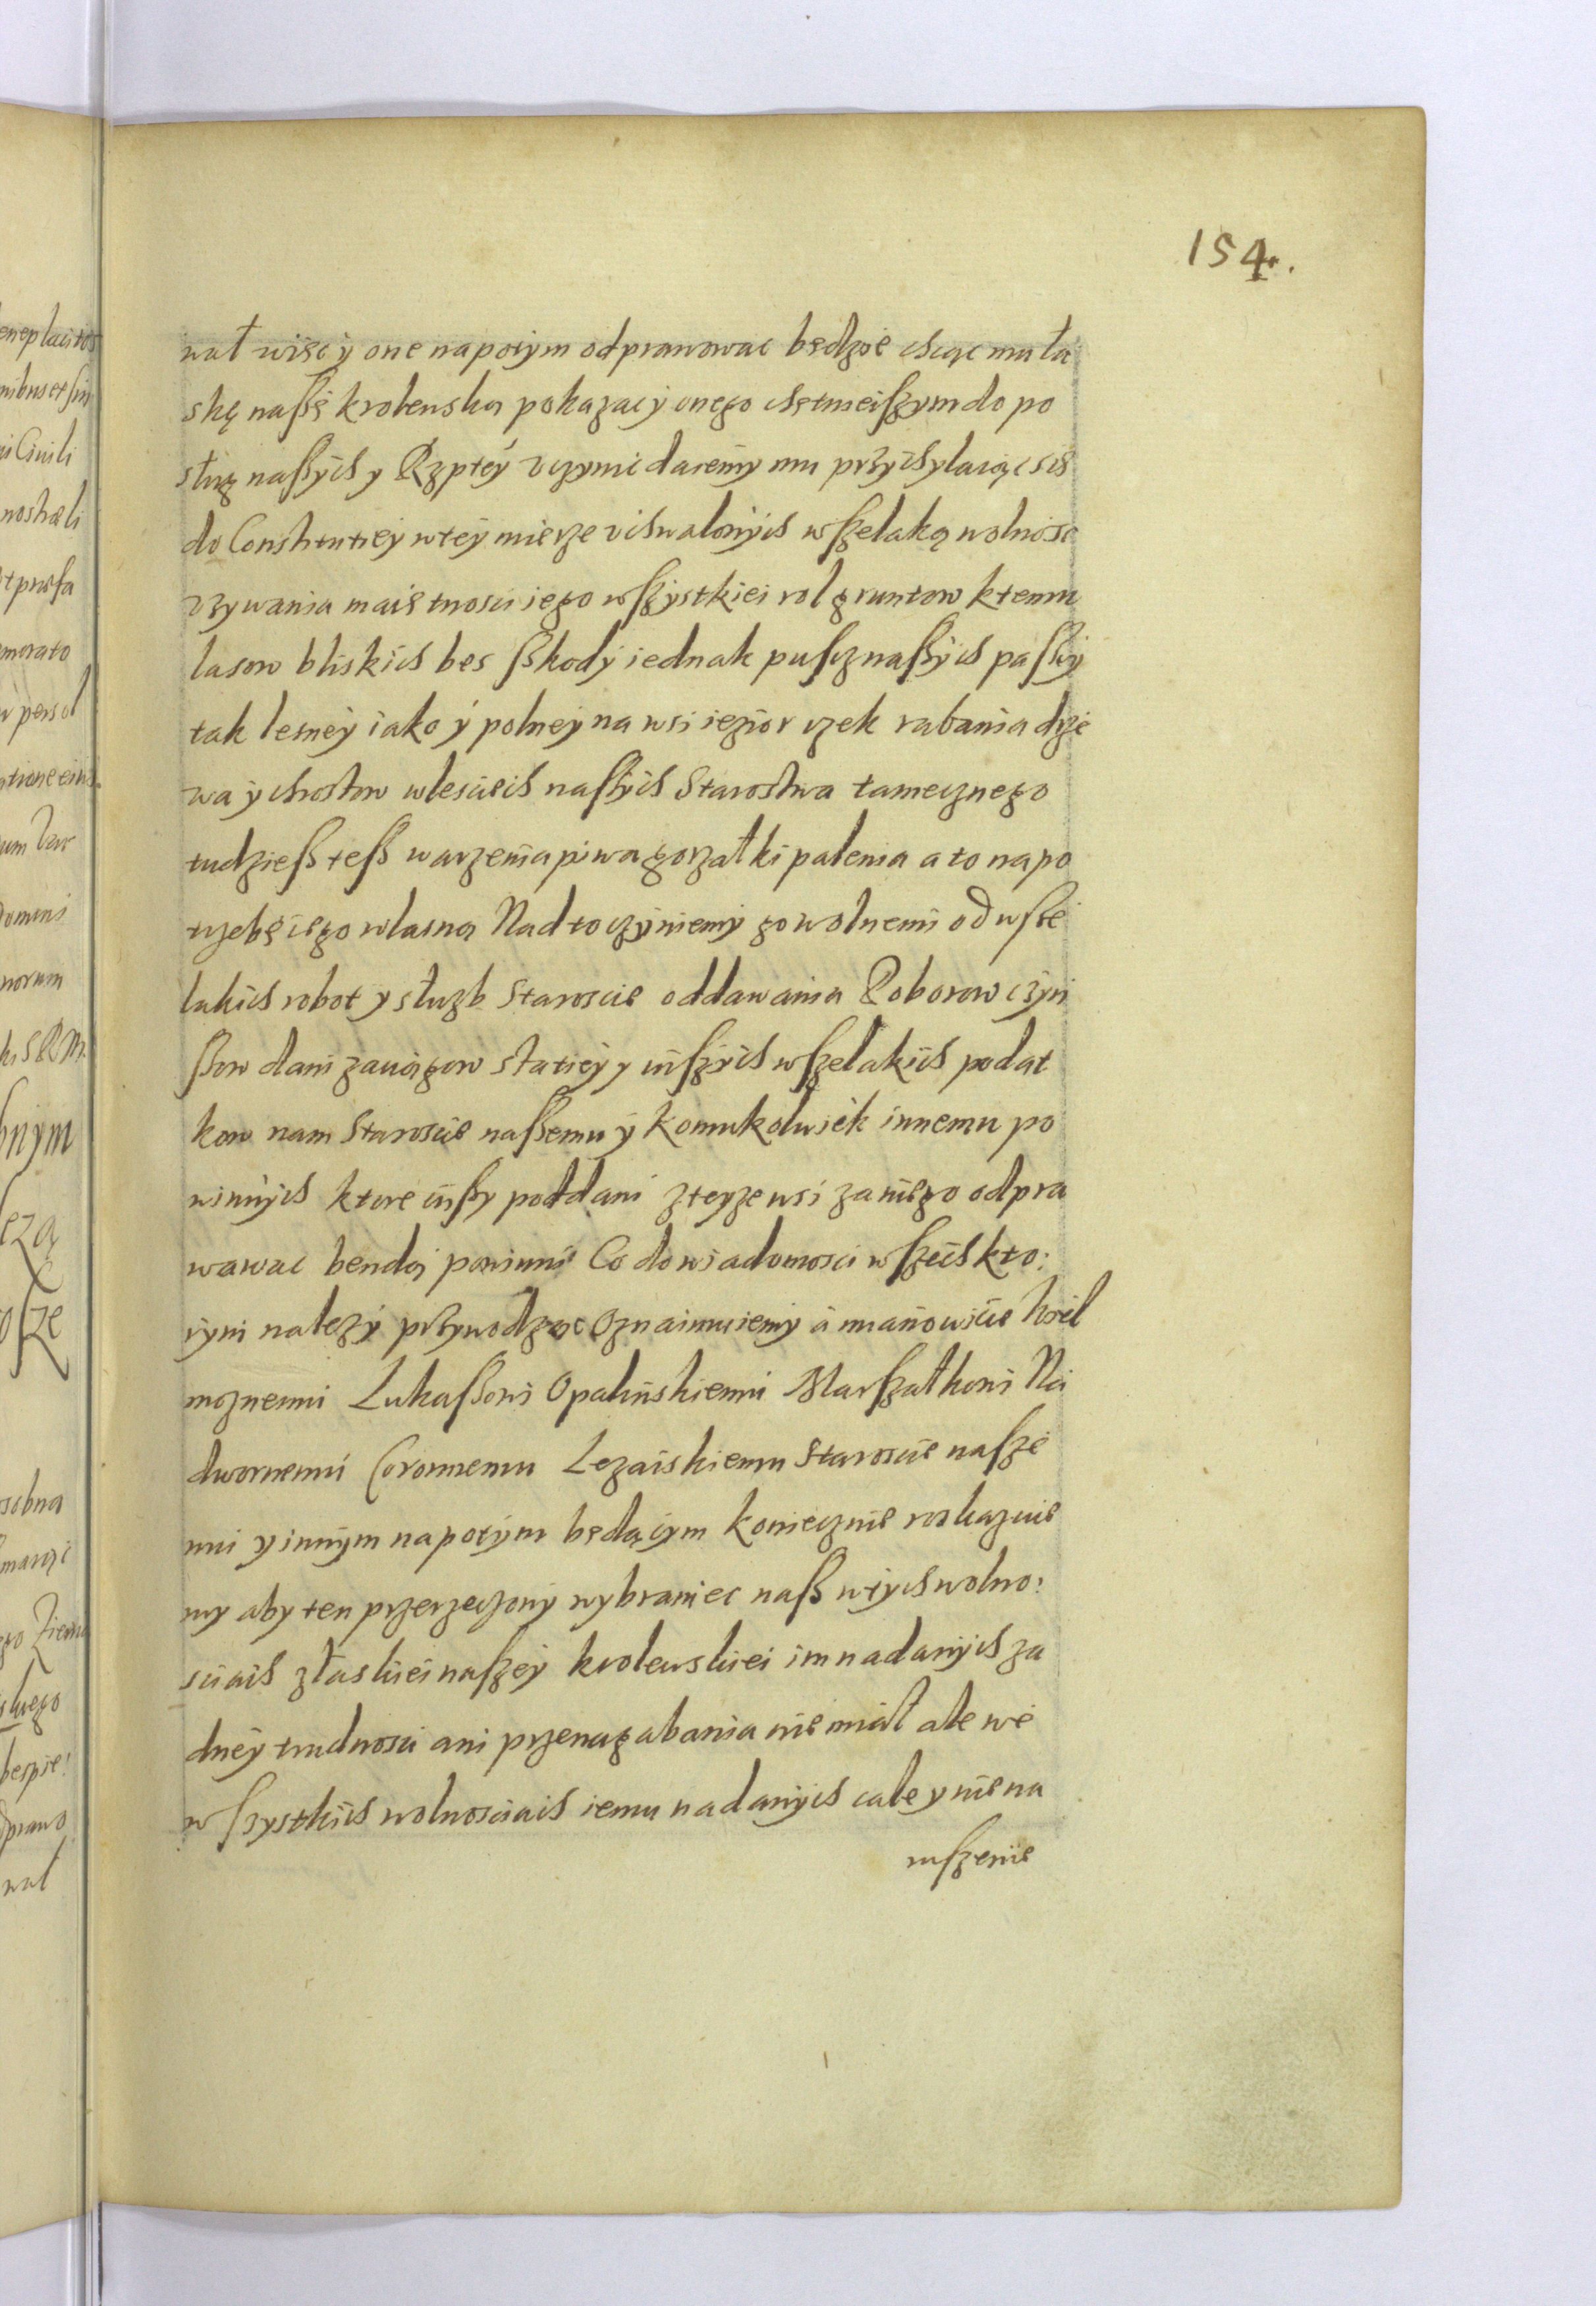 154.
wał więc y one napotym odprawowac będzie chcąc mu ła
skę naßę krolewską pokazac y onego chętnieiſzym do po
sług naßych y Rzptey uczynic daiemy mu przychylaiąc się
do Constitutiey w tey mierze uchwalonych wſzelaką wolnosc
uzywania maietnosci iego wſzystkiei rol gruntow k temu
lasow bliskich bes ßkody iednak puſcz naßych paßy
tak lesney iako y polney na wsi iezior rzek rabania drze
wa y chrostow w lesiech naßych Starostwa tamecznego
tudzieß teß warzenia piwa gorzałki palenia a to na po
trzebę iego własną Nad to czyniemy go wolnemi od wße
lakich robot y służb Staroscie oddawania Poborow czyn
ßow dani zaciągow statiey y inſzych wſzelakich podat
kow nam Staroscie naßemu y komukolwiek innemu po
winnych ktore inßy poddani z teyze wsi za niego odpra
wawac bendą powinni Co do wiadomosci wſzech kto:
rym nalezy przywodząc Oznaimuiemy a mianowicie Wiel
moznemu Lukaßowi Opalinskiemu Marſzałkowi Na
dwornemu Coronnemu Lezaiskiemu Staroscie naſze
mu y innym napotym będącym koniecznie roskazuie
my aby ten przerzeczony wybraniec naß w tych wolno:
sciach z łaskiei naſzey krolewskiei im nadanych za
dney trudnosci ani przenagabania nie miał ale we
wßystkich wolnosciach iemu nadanych cale y niena
ruſzenie